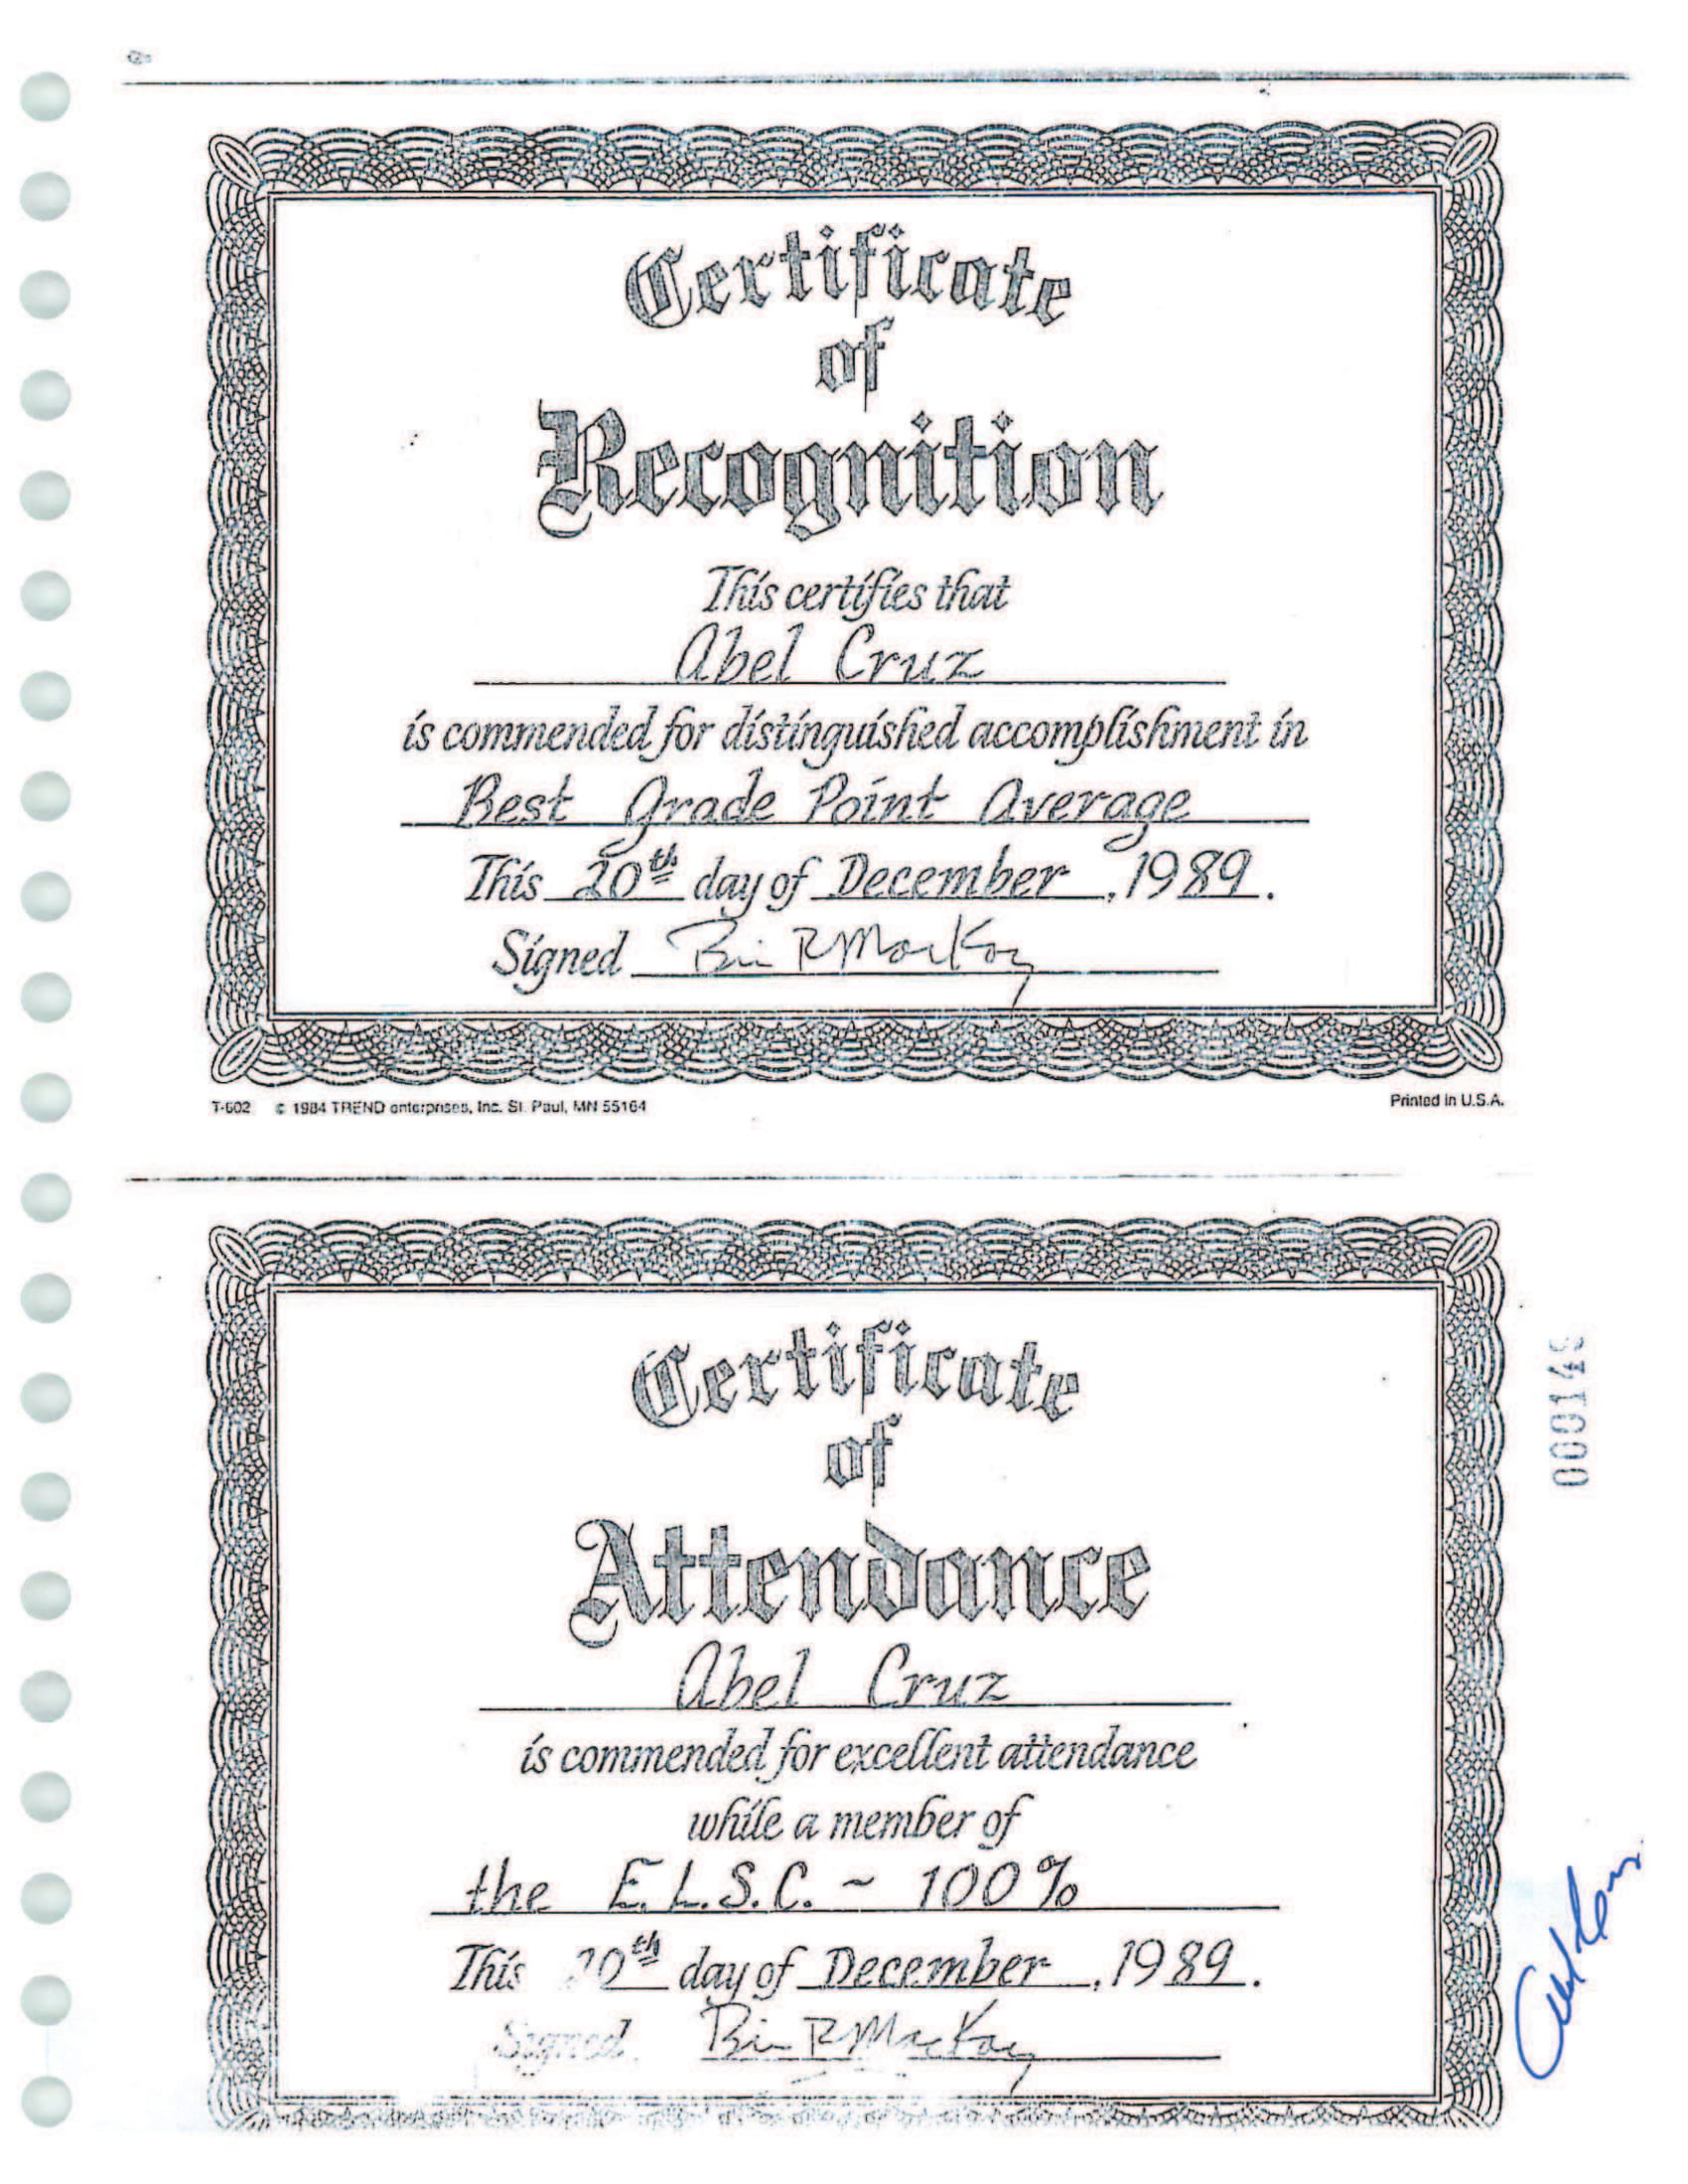 Certificate
of
Recognition
This certifies that
Abel Cruz
is commended for distinguished accomplishment in
Best Grade Point Average
This 20th day of December, 1989.
Signed
T-602 © 1984 TREND enterprises, Inc. St. Paul, MN 55164
Printed in U.S.A.
Certificate
of
Attendance
Abel Cruz
is commended for excellent attendance
while a member of
the E.L.S.C. ~ 100%
This 20th day of December, 1989.
Signed